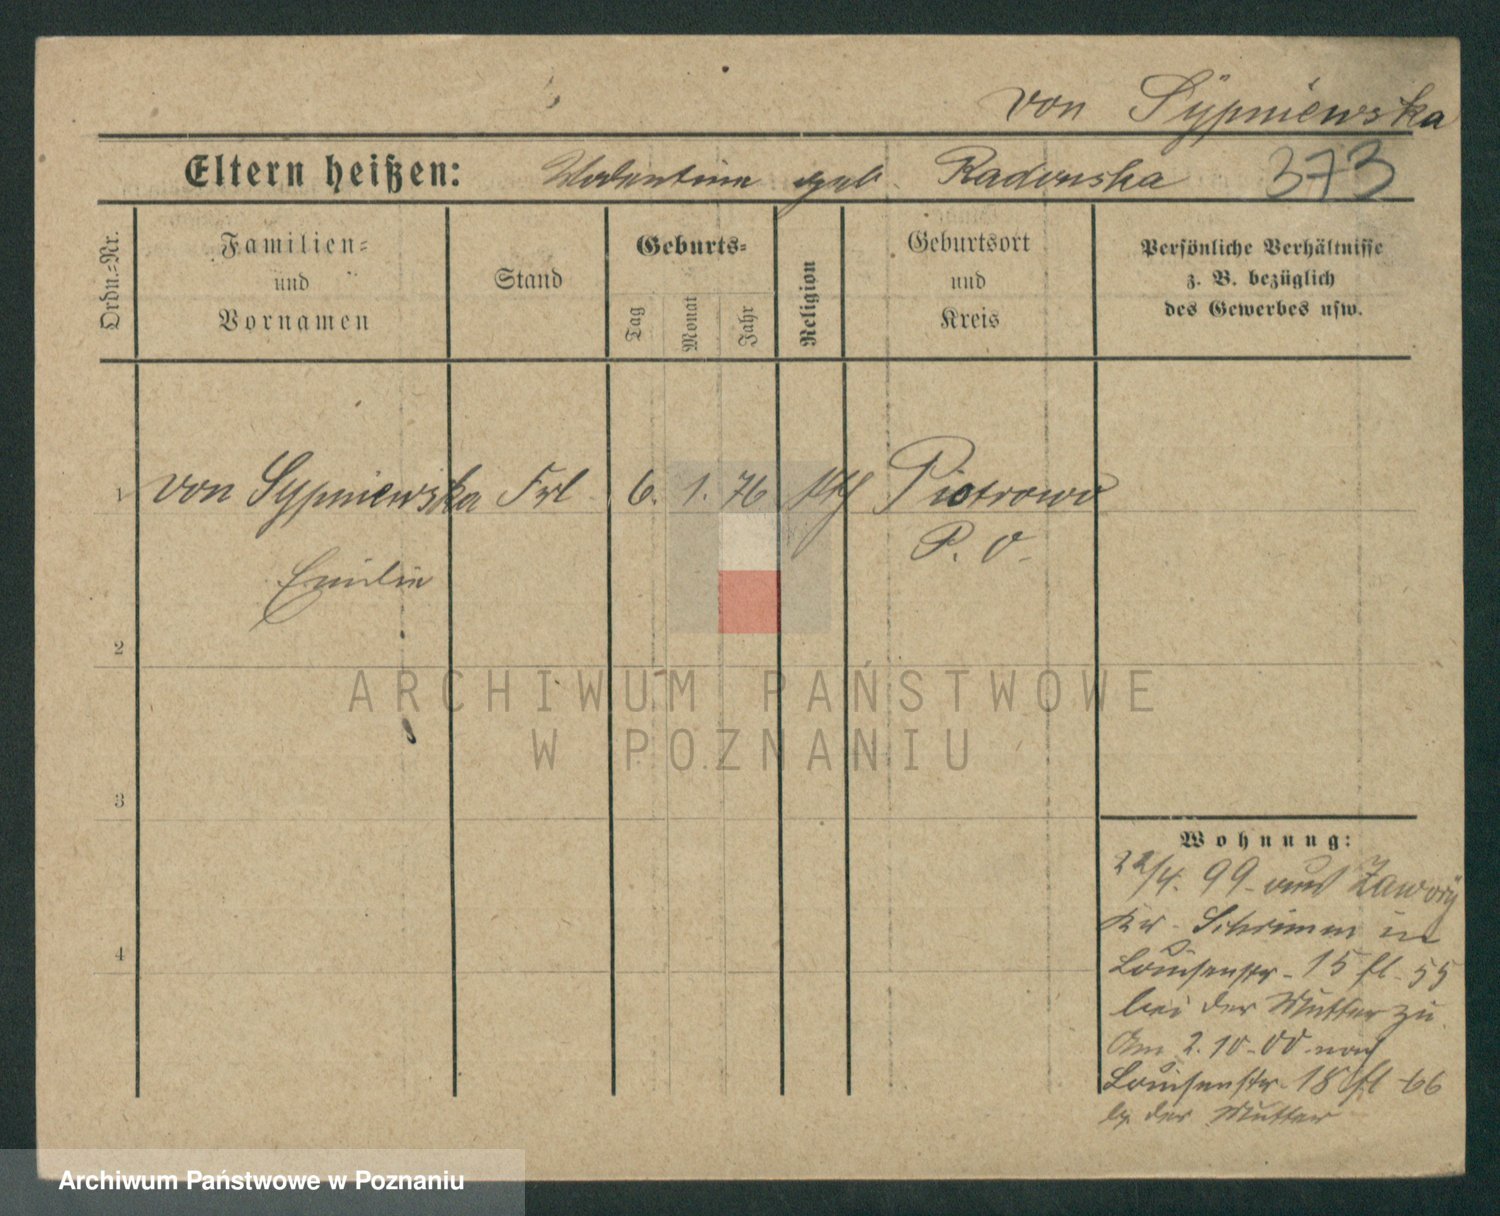 von Sÿpniewska
Eltern heißen: Valentine geb. Radonska 373
Ordn.-Nr.
Familien-
und
Vornamen
Stand
Geburts-
Tag
Monat
Jahr
Religion
Geburtsort
und
Kreis
Persönliche Verhältnisse
z. B. bezüglich
des Gewerbes usw.
1 von Sypniewska Frl 6. 1. 76 kth Piotrowo
Emilie P. O.
2
3
4
ARCHIWUM PAŃSTWOWE
W POZNANIU
Wohnung:
22/4. 99. aus Zaworÿ
Kr. Schrimm in
Louisenstr. 15 fl. 55
bei der Mutter zu.
Am 2. 10. 00 nach
Louisenstr. 18 fl 66
b. der Mutter
Archiwum Państwowe w Poznaniu